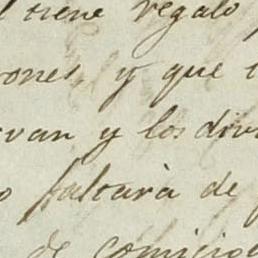 tiene regalo
ones, y que
van y los div
faltará de
de comicio